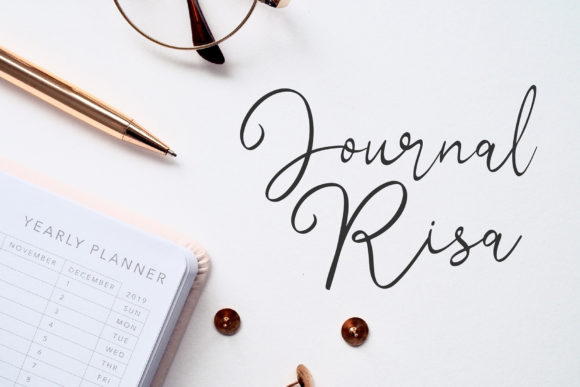 Journal
Risa
YEARLY PLANNER
NOVEMBER DECEMBER 2019
1 SUN
2 MON
3 TUE
4 WED
5 THU
6 FRI
7
8